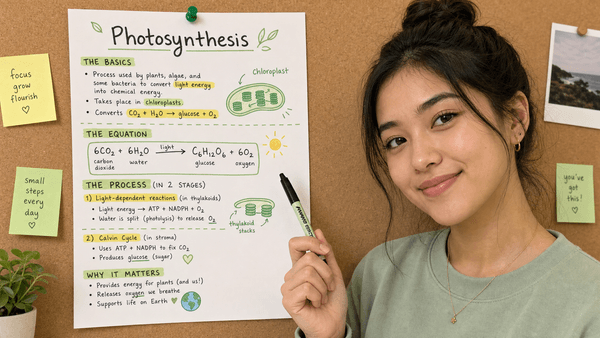 Photosynthesis
THE BASICS
• Process used by plants, algae, and
some bacteria to convert light energy
into chemical energy.
• Takes place in chloroplasts.
• Converts CO₂ + H₂O → glucose + O₂
Chloroplast
THE EQUATION
6CO₂ + 6H₂O light → C₆H₁₂O₆ + 6O₂
carbon dioxide water glucose oxygen
THE PROCESS (IN 2 STAGES)
1) Light-dependent reactions (in thylakoids)
• Light energy → ATP + NADPH + O₂
• Water is split (photolysis) to release O₂
thylakoid
stacks
2) Calvin Cycle (in stroma)
• Uses ATP + NADPH to fix CO₂
• Produces glucose (sugar)
WHY IT MATTERS
• Provides energy for plants (and us!)
• Releases oxygen we breathe
• Supports life on Earth
focus
grow
flourish
small
steps
every
day
you've
got
this!